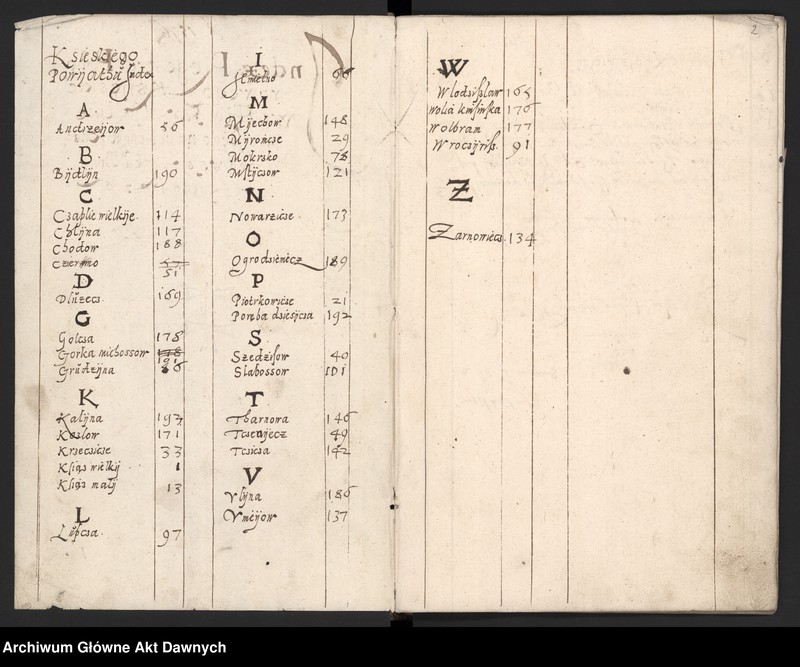 Ksieskiego
Powijathu Inde
A
Andrzeijow 56
B
Bijdlijn 190
C
Csaplie wielkije 114
Chlijna 117
Chodow 188
Cziermno 51
D
Dlużecs 169
G
Golcsa 178
Gorka michossow 191
Grudzijna 86
K
Kalijna 193
Koslow 171
Krzecsicse 33
Ksiąs wielkij 1
Ksiąs malij 13
L
Lupcsa 97
I
Jemielno 66
M
Mijechow 148
Mijronicse 29
Mokrsko 78
Mstijcsow 121
N
Nowarzicse 173
O
Ogrodsieniecz 189
P
Piotrkowicse 21
Poręba dsiesijcsa 192
S
Szedzisow 40
Slabossow 101
T
Tharnowa 146
Tcsenijecz 49
Tcsicsa 142
V
Vlijna 186
Vmijow 137
2
W
Wlodzislaw 165
Wolia kmsinska 176
Wolbram 177
Wrocsijriss 91
Z
Zarnowiecs 134
Archiwum Główne Akt Dawnych